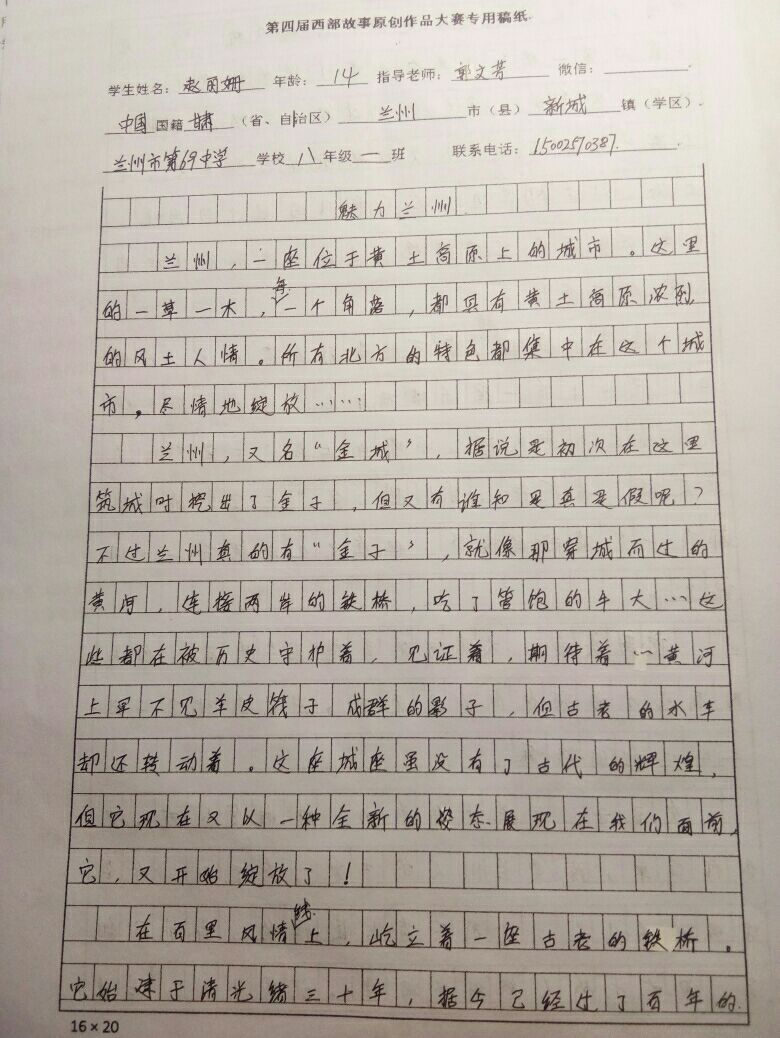 第四届西部故事原创作品大赛专用稿纸
学生姓名：赵丽姗 年龄：14 指导老师：郭文芳 微信：
中国国籍 甘肃（省、自治区）兰州市（县）新城镇（学区）.
兰州市第69中学学校 八年级一班 联系电话：15002570387.
魅力兰州
兰州，一座位于黄土高原上的城市。这里
的一草一木，每一个角落，都具有黄土高原浓烈
的风土人情。所有北方的特色都集中在这个城
市，尽情地绽放……
兰州，又名“金城”，据说是初次在这里
筑城时挖出了金子，但又有谁知是真是假呢？
不过兰州真的有“金子”，就像那穿城而过的
黄河，连接两岸的铁桥，吃了管饱的牛大…这
些都在被历史守护着，见证着，期待着…黄河
上罕不见羊皮筏子成群的影子，但古老的水车
却还转动着。这座城座虽没有了古代的辉煌，
但它现在又以一种全新的姿态展现在我们面前，
它，又开始绽放了！
在百里风情线上，屹立着一座古老的铁桥。
它始建于清光绪三十年，据今已经过了百年的
16×20